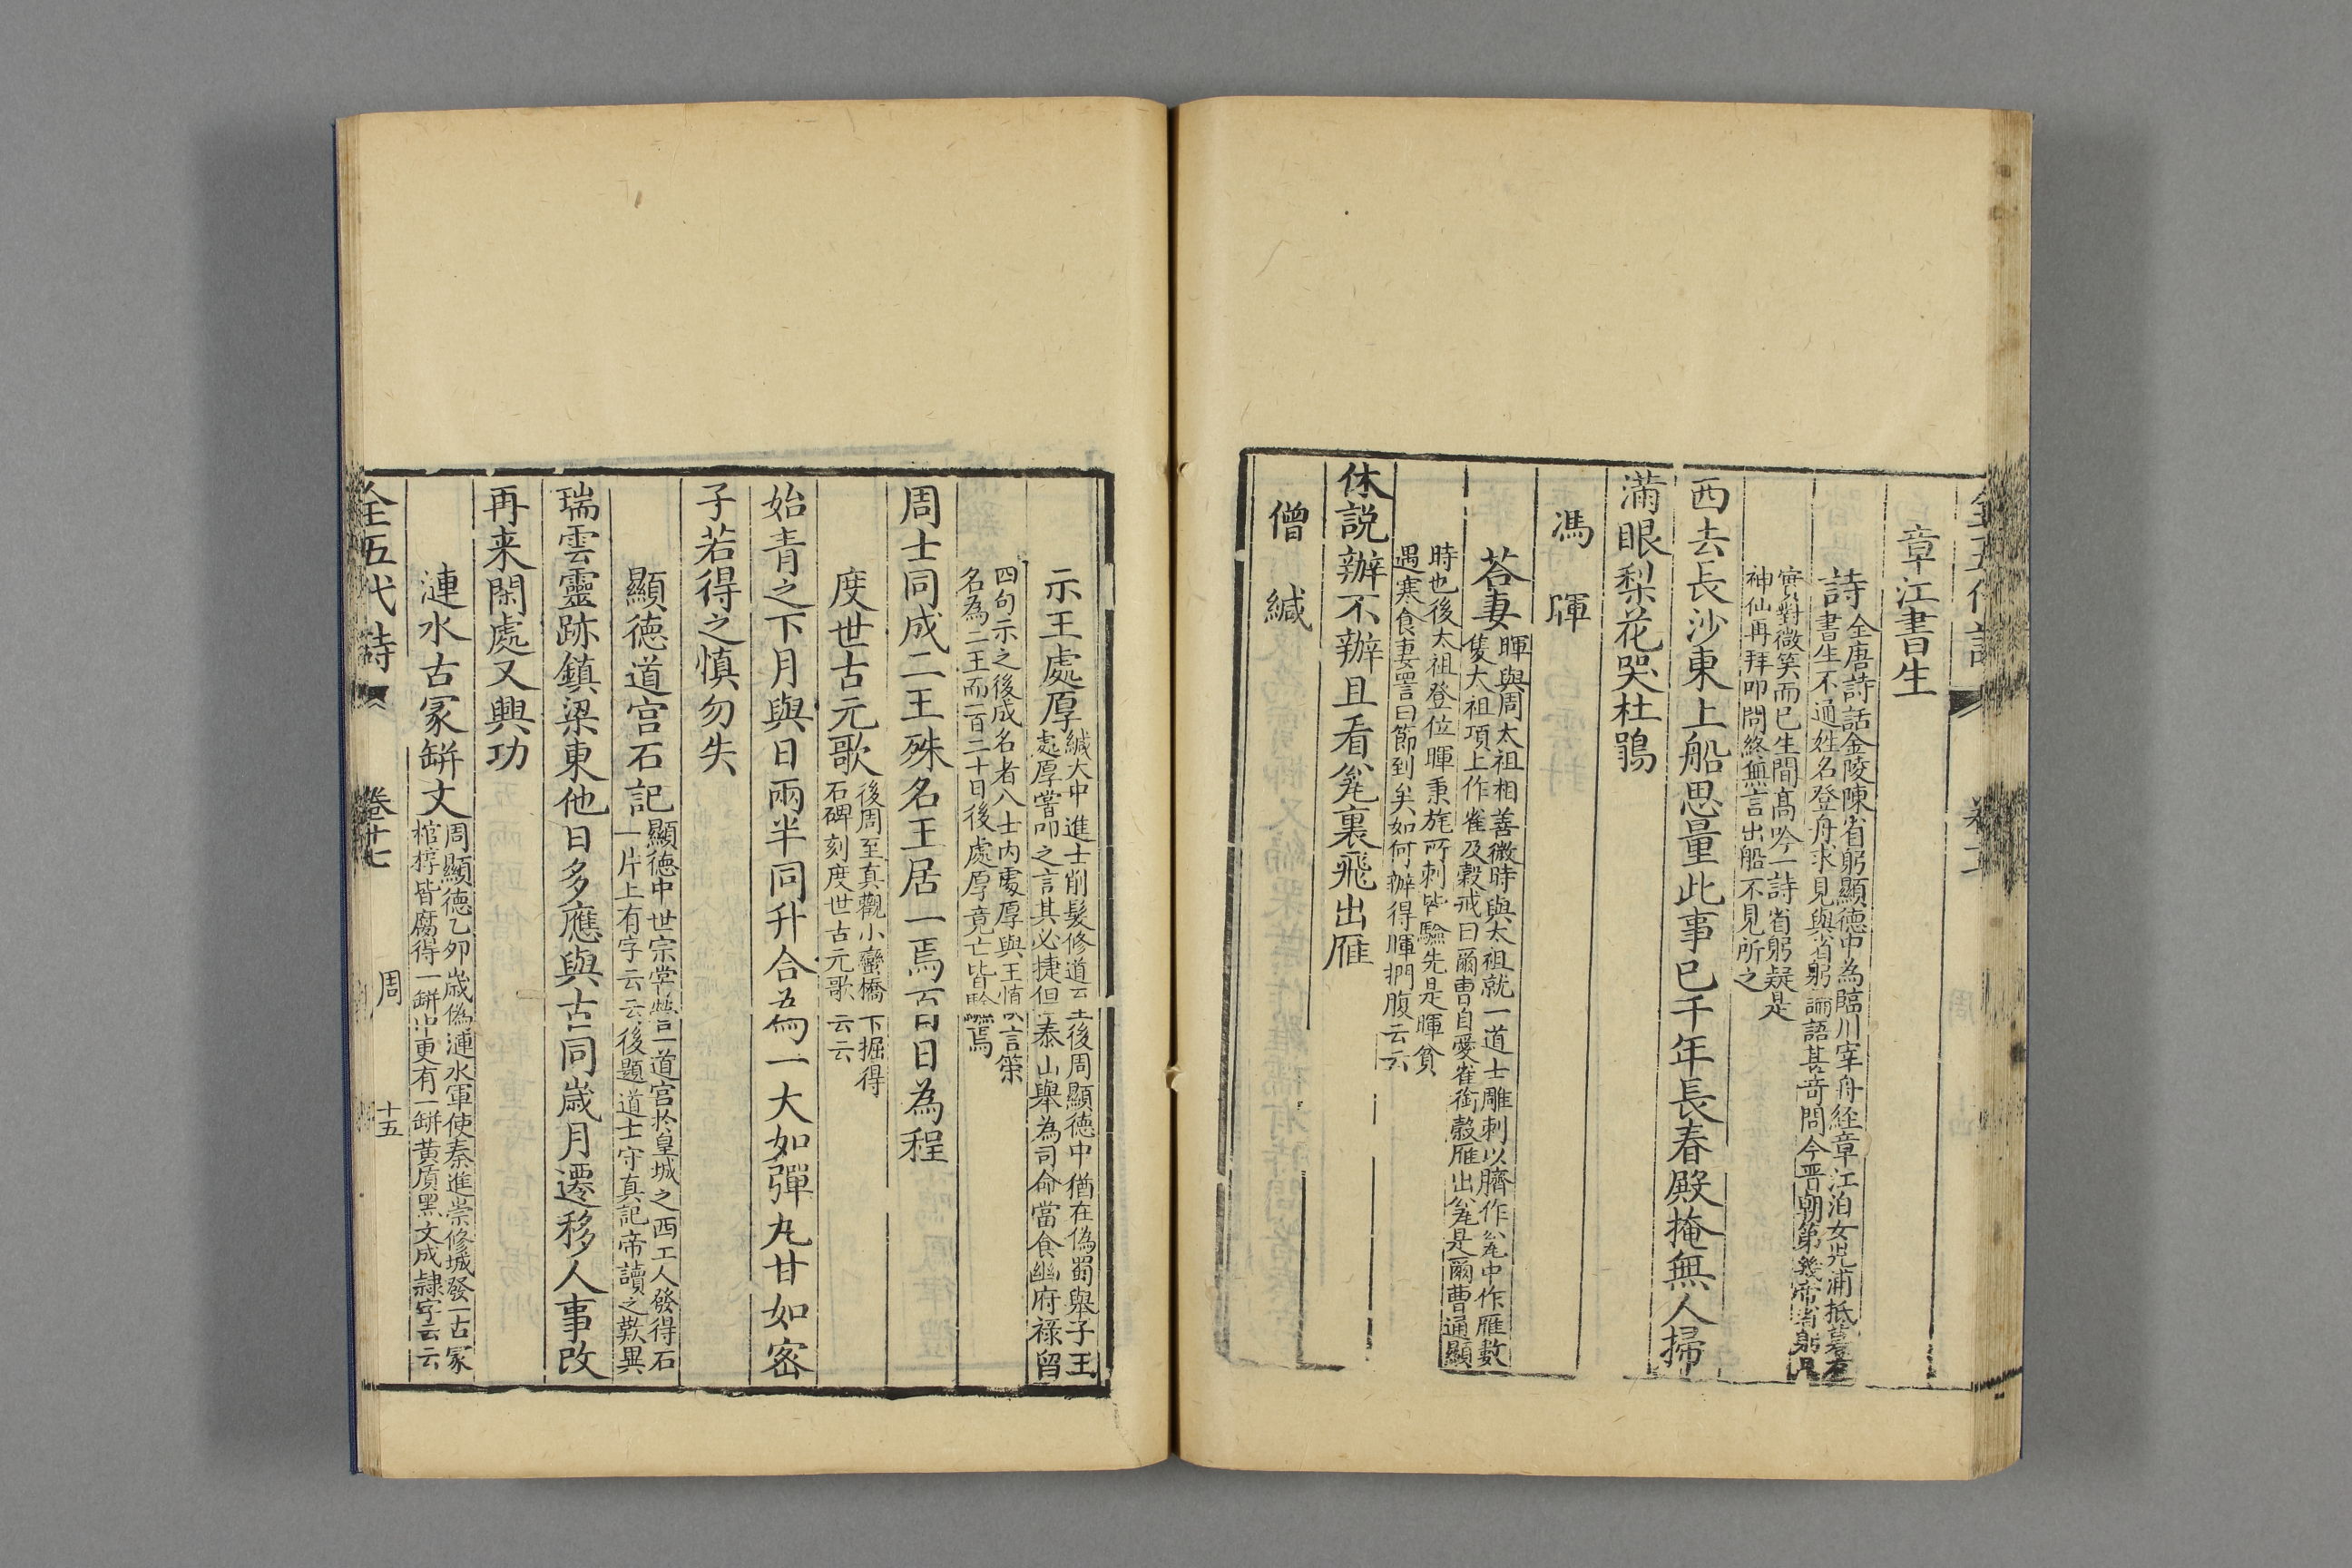 章江書生
詩
全唐詩話金陵陳省躬顯德中為臨川宰舟經章江泊女兒浦抵暮有
書生不通姓名登舟求見與省躬論語甚奇問今晋朝第幾帝省躬具
實對微笑而已生間髙吟一詩省躬疑是
神仙再拜叩問終無言出船不見所之
西去長沙東上船思量此事已千年長春殿掩無人掃
滿眼梨花哭杜鵑
馮暉
荅妻
暉與周太祖相善微時與太祖就一道士雕刺以臍作瓮中作雁數
隻太祖項上作雀及穀戒曰爾曹自愛雀銜穀雁出瓮是爾曹通顯
時也後太祖登位暉秉旄所刺皆驗先是暉貧
遇寒食妻詈曰節到矣如何辦得暉捫腹云云
休説辦不辦且看瓮裏飛出雁
僧緘
示王處厚
緘大中進士削髮修道後周顯德中猶在偽蜀舉子王
處厚嘗叩之言其必捷但泰山舉為司命當食幽府祿留
四句示之後成名者八士内處厚與王慎言策
名為二王而一百二十日後處厚竟亡皆驗焉
周士同成二王殊名王居一焉百日為程
度世古元歌
後周至真觀小蠻橋下掘得
石碑刻度世古元歌云云
始青之下月與日兩半同升合為一大如彈丸甘如宻
子若得之慎勿失
顯德道宫石記
顯德中世宗常營一道宫於皇城之西工人發得石
一片上有字云云後題道士守真記帝讀之歎異
瑞雲靈跡鎮梁東他日多應與古同歳月遷移人事改
再来閑處又興功
漣水古冡缾文
周顯德乙夘歳偽漣水軍使秦進崇修城發一古冡
棺椁皆腐得一缾中更有一缾黄質黑文成隷字云云
全五代詩
卷十七
周
十五